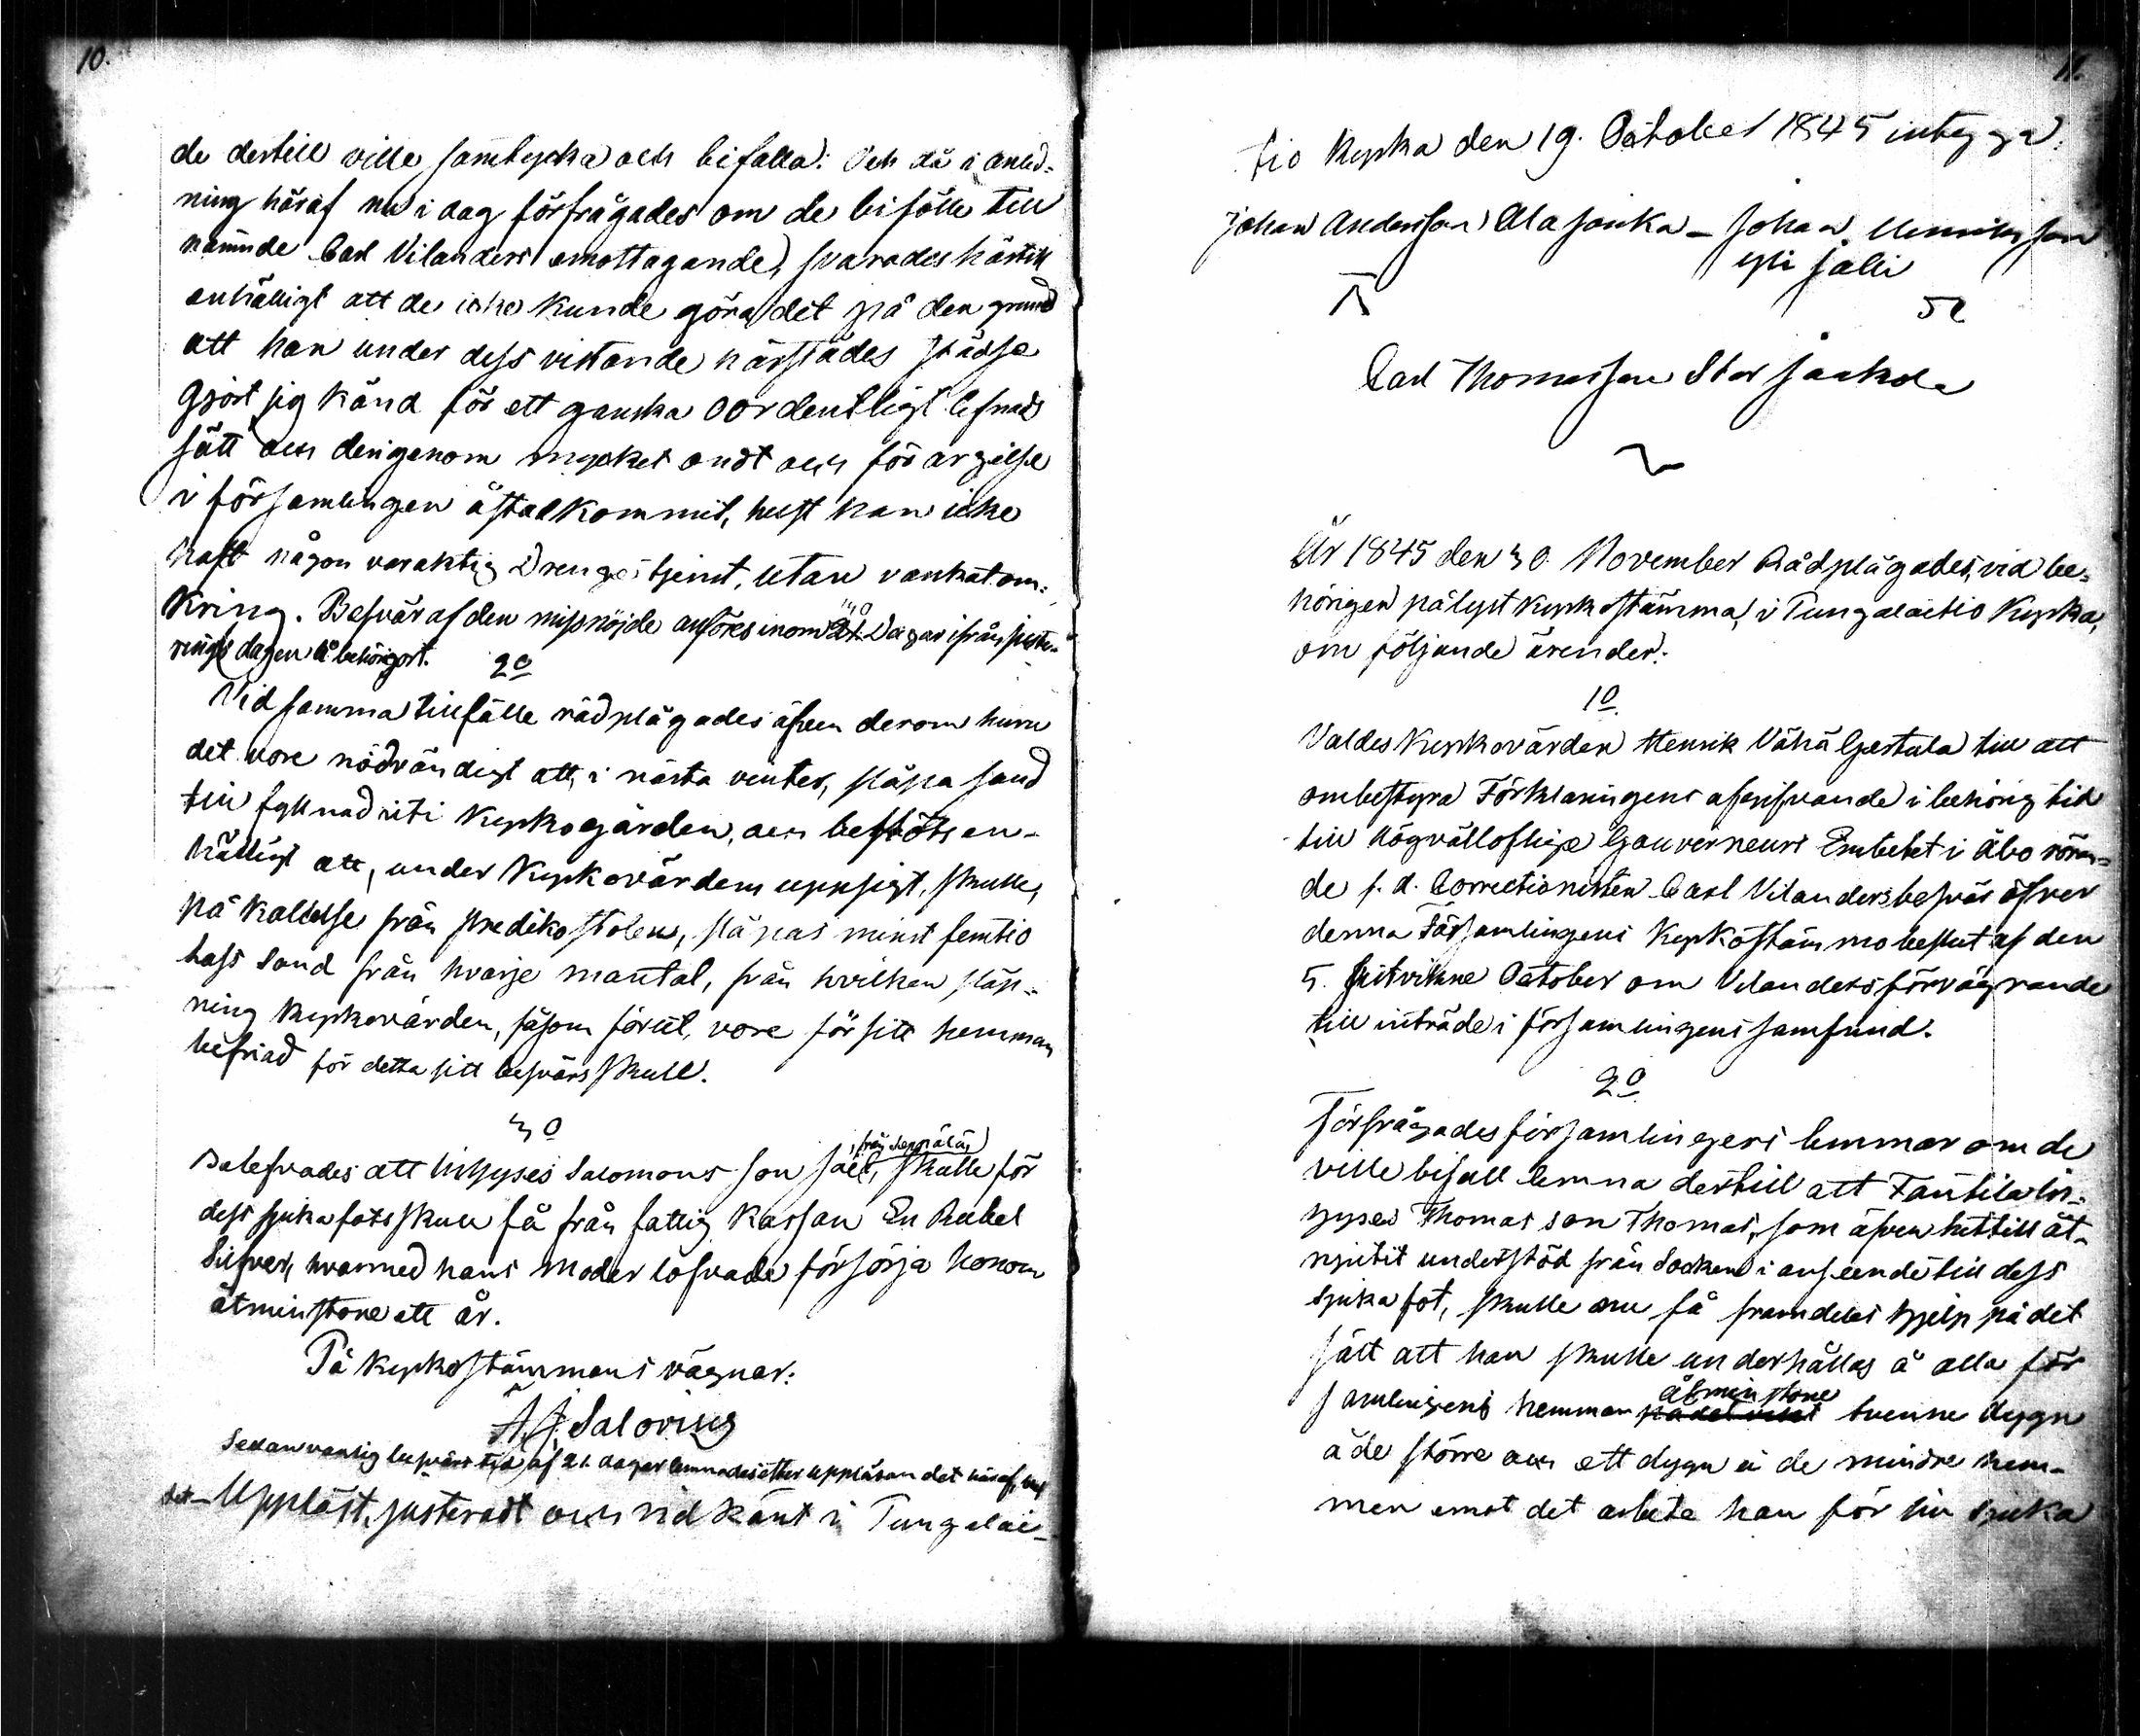 10.
de dertill ville samtycka och bifalla: Och då i anled-
ning häraf nu i dag förfrågades om de biföllo till
nämnde Carl Vilanders emottagande, svarades härtill
enhälligt att de icke kunde göra det på den grund
att han under dess vistande härstädes städse
gjort sig känd för ett ganska oordentligt lefnads
sätt och derigenom mycket ondt och förargelse
i församlingen åstadkommit, helst han icke
haft någon varaktig Drengetjenst, utan vankat om-
kring. Besvär af den missnöjde anföres inom 30 Dagar ifrån juste-
rings dagen å behörig ort.
2o
Vid samma tillfälle rådplägades äfven derom huru
det vore nödvändigt att, i nästa vinter, släpa sand
till fyllnad uti Kyrkogården, och beslöts en-
hälligt att, under Kyrkovärdens uppsigt, skulle,
på kallelse från predikostolen, släpas minst femtio
lass Sand från hvarje mantal, från hvilken släp-
ning Kyrkovärden, såsom förut, vore för sitt hemman
befriad för detta sitt besvärs skull.
3o
, från Seppälä,
Belefvades att Inhyses Salomons son Joel, skulle för
dess sjuka fots skull få från fattig Kassan En Rubel
Silfver, hvarmed hans Moder lofvade försörja honom
åtminstone ett år.
På Kyrkostämmans vägnar:
A. J. Salovius
Sedan vanlig besvärs tid af 21 dagar lemnades efter uppläsandet häraf,
Uppläst, justeradt och vid känt i Tungelai-
11.
tio Kyrka den 19. October 1845 intyga:
Johan Andersson Ala Jonka – Johan Henriksson
Yli Jalli
Carl Thomasson Stor Jaakola
År 1845 den 30. November Rådplägades, vid be-
hörigen pålyst Kyrkostämma, i Tungalaitio Kyrka,
om följande ärender:
1o.
Valdes Kyrkovärden Henrik Vähä Gestala till att
ombestyra Förklaringens afgifvande i behörig tid
till Högvälloflige Gouverneurs Embetet i Åbo röran-
de f. d. Correctionisten Carl Vilanders besvär öfver
denna Församlingens Kyrkostämmobeslut af den
5. sistvikne October om Vilanders förvägrande
till inträde i församlingens samfund.
2o.
Förfrågades församlingens lemmar om de
ville bifall lemna dertill att Fantila In-
hyses Thomas son Thomas, som äfven hittills åt-
njutit understöd från Socknen i anseende till dess
sjuka fot, skulle nu få framdeles hjelp på det
sätt att han skulle underhållas å alla för
åtminstone
samlingens hemman på det viset tvenne dygn
å de större och ett dygn å de mindre hem-
men emot det arbete han för sin sjuka